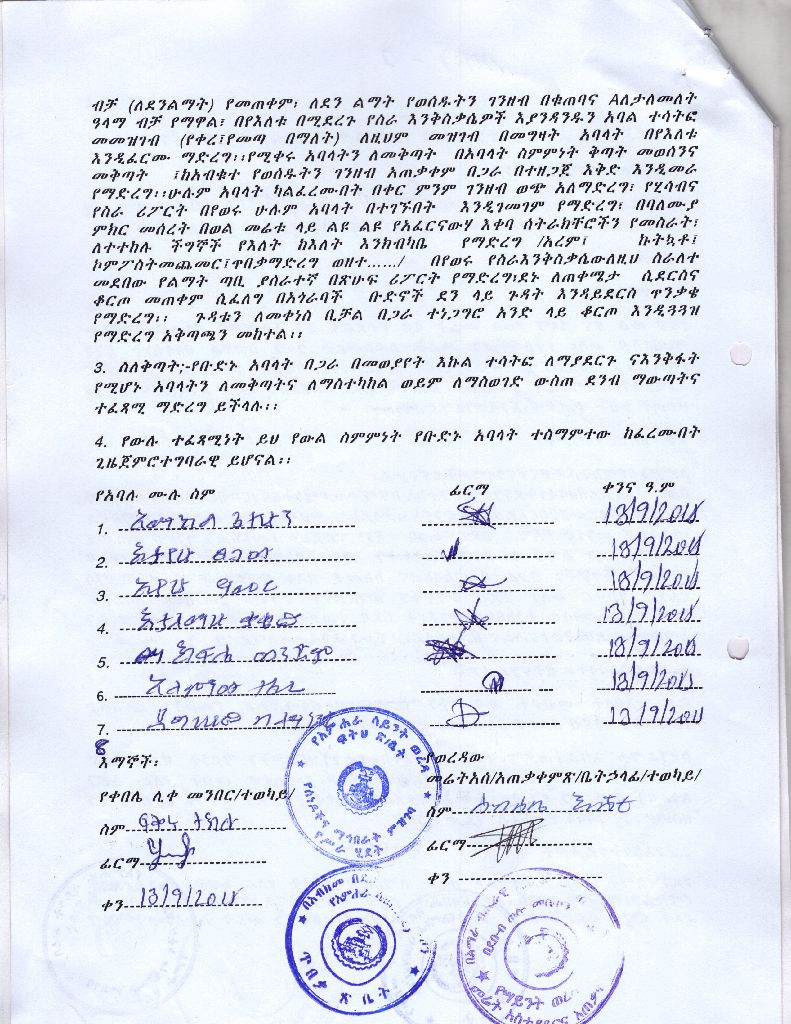 ብቻ (ለደንልማት) የመጠቀም፣ ለደን ልማት የወሰዱትን ገንዘብ በቁጠባና Aለታለመለት
ዓላማ ብቻ የማዋል፣ በየእለቱ በሚደረጉ የስራ እንቅስቃሴዎች እያንዳንዱን አባል ተሳትፎ
መመዝገብ (የቀረ፣የመጣ በማለት) ለዚህም መዝገብ በመግዛት አባላት በየእለቱ
እንዲፈርሙ ማድረግ፡፡የሚቀሩ አባላትን ለመቅጣት በአባላት ስምምነት ቅጣት መወሰንና
መቅጣት ፣ከአብቁተ የወሰዱትን ገንዘብ አጠቃቀም በጋራ በተዘጋጀ እቅድ እንዲመራ
የማድረግ፡፡ሁሉም አባላት ካልፈረሙበት በቀር ምንም ገንዘብ ወጭ አለማድረግ፣ የሂሳብና
የስራ ሪፖርት በየወሩ ሁሉም አባላት በተገኙበት እንዲገመገም የማድረግ፣ በባለሙያ
ምክር መሰረት በወል መሬቱ ላይ ልዩ ልዩ የአፈርናውሃ እቀባ ስትራክቸሮችን የመስራት፣
ለተተከሉ ችግኞች የእለት ከእለት እንክብካቤ የማድረግ /አረም፣ ኩትኳቶ፣
ኮምፖስትመጨመር፣ጥበቃማድረግ ወዘተ....../ በየወሩ የስራእንቅስቃሴውለዚህ ስራለተ
መደበው የልማት ጣቢ ያሰራተኛ በጽሁፍ ሪፖርት የማድረግ፣ደኑ ለጠቀሜታ ሲደርስና
ቆርጦ መጠቀም ሲፈለግ በአጎራባች ቡድኖች ደን ላይ ጉዳት እንዳይደርስ ጥንቃቄ
የማድረግ፡፡ ጉዳቱን ለመቀነስ ቢቻል በጋራ ተነጋግሮ አንድ ላይ ቆርጦ እንዲጓጓዝ
የማድረግ አቅጣጫን መከተል፡፡
3. ስለቅጣት፡-የቡድኑ አባላት በጋራ በመወያየት እኩል ተሳትፎ ለማያደርጉ ናእንቅፋት
የሚሆኑ አባላትን ለመቅጣትና ለማስተካከል ወይም ለማስወገድ ውስጠ ደንብ ማውጣትና
ተፈጻሚ ማድረግ ይችላሉ፡፡
4. የውሉ ተፈጻሚነት ይህ የውል ስምምነት የቡድኑ አባላት ተስማምተው ከፈረሙበት
ጊዜጀምሮተግባራዊ ይሆናል፡፡
የአባሉ ሙሉ ስም ፊርማ ቀንና ዓ.ም
1. 13/9/2014
2. 13/9/2014
3. 13/9/2014
4. 13/9/2014
5. 13/9/2014
6. 13/9/2014
7. 13/9/2014
8
እማኞች፡ የወረዳው
መሬትአስ/አጠቃቀምጽ/ቤትኃላፊ/ተወካይ/
የቀበሌ ሊቀ መንበር/ተወካይ/
ስም ስም
ፊርማ ፊርማ
ቀን 13/9/2014 ቀን